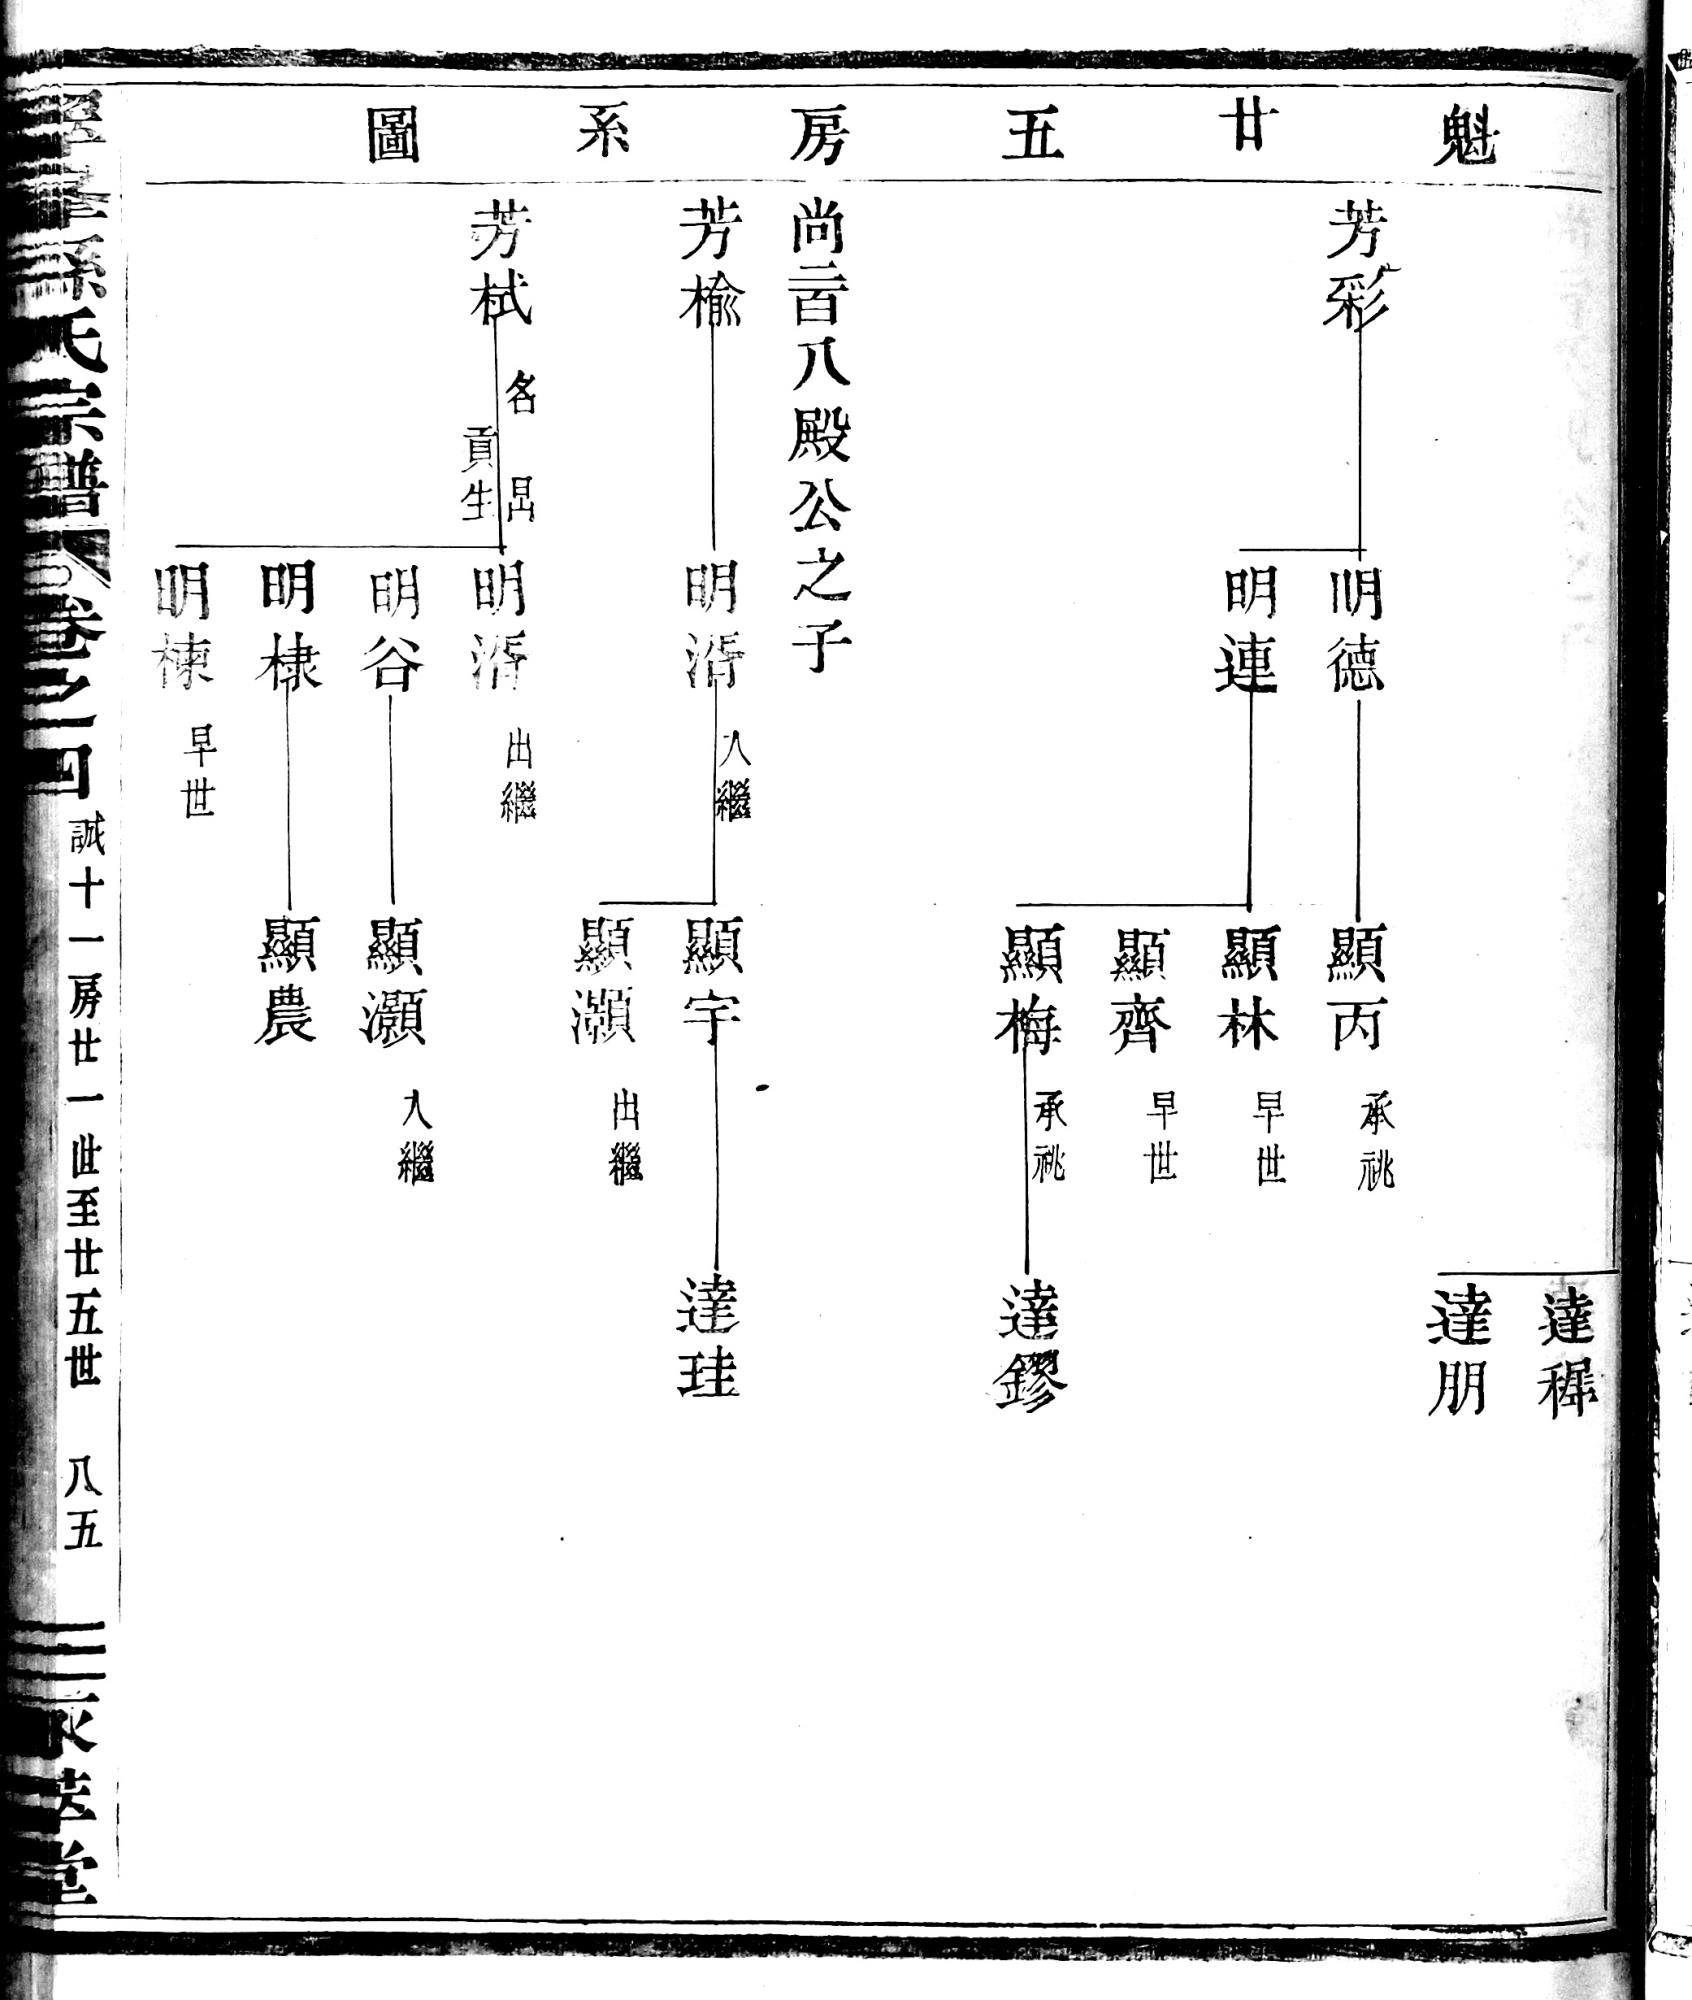 魁廿五房系圖
達穉
達朋
芳彩
明德
顯丙 承祧
明連
顯林 早世
顯齊 早世
顯梅 承祧
達鏐
尚二百八殿公之子
芳榆
明湑 入繼
顯宇
達珪
顯灝 出繼
芳栻 名 貢生
明湑 出繼
明谷
顯灝 入繼
明棣
顯農
明棟 早世
孫氏宗譜 卷之四 誠十一房廿一世至廿五世 八五 堂